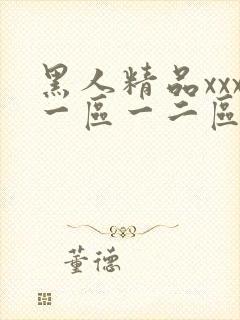 黑人精品xxx
一區一二區
董德